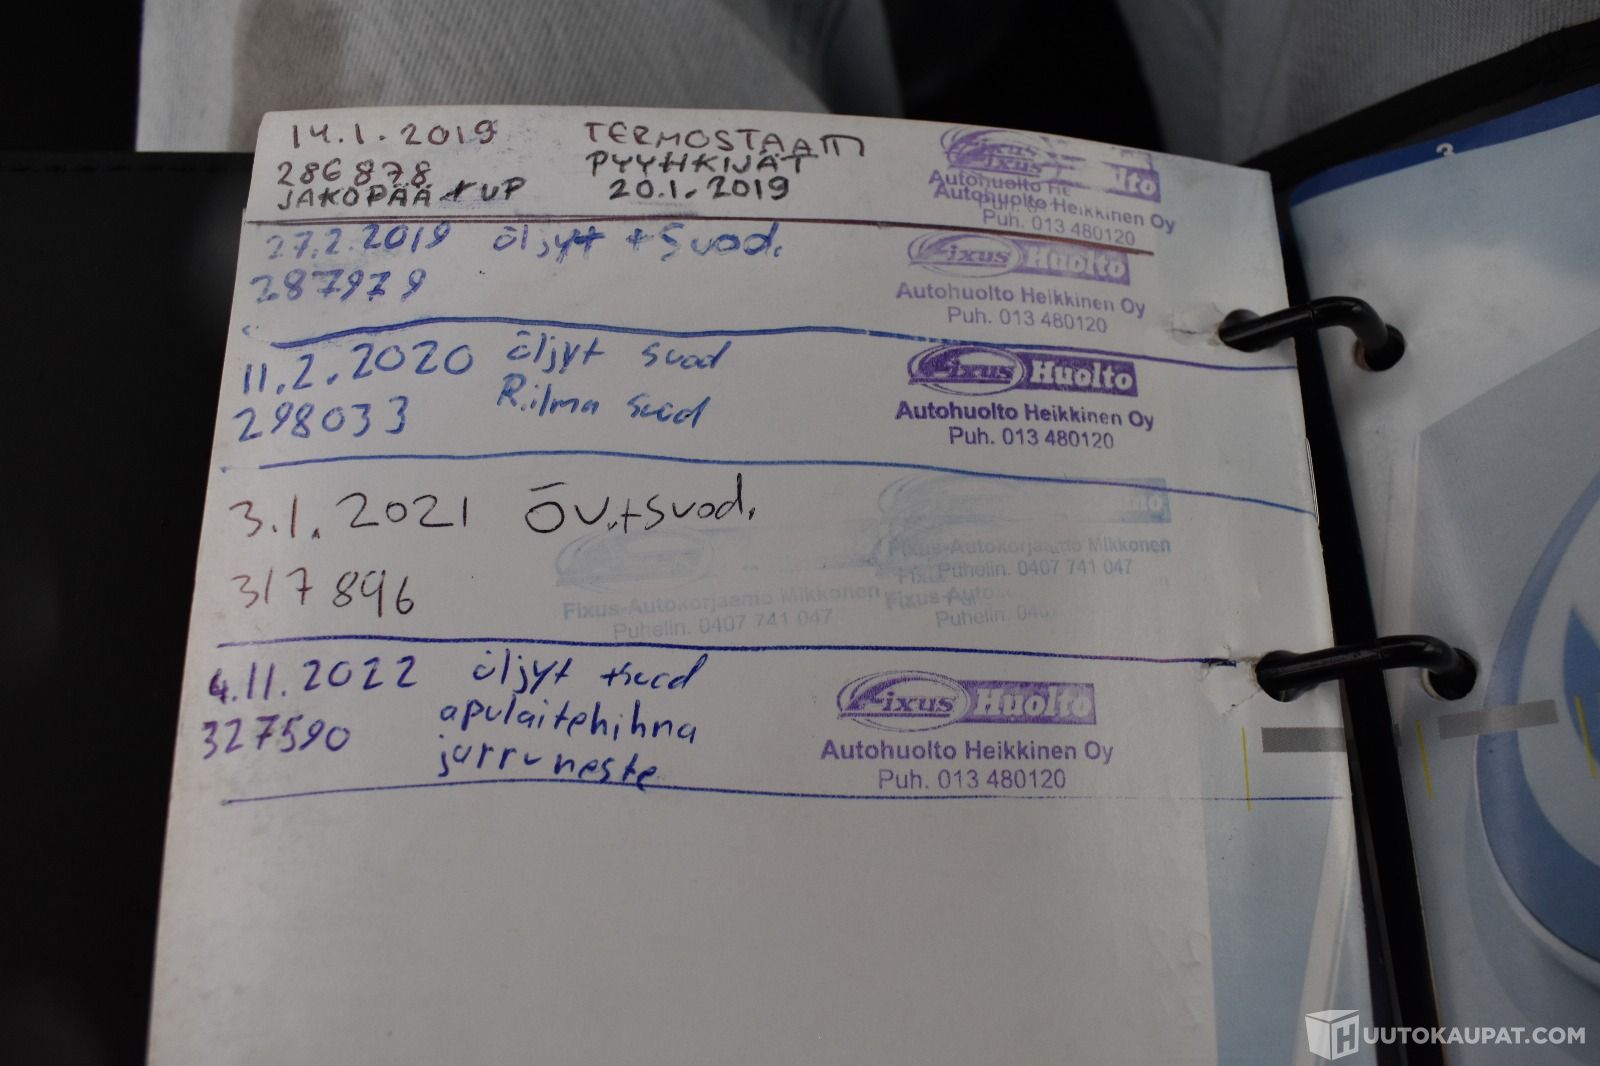 14.1.2019 TERMOSTAATTI
286878 PYYHKIJÄT
JAKOPÄÄ + VP 20.1.2019
Fixus
Fixus Huolto
Autohuolto He
Autohuolto Heikkinen Oy
Puh. 013 480120
27.2.2019 öljyt + suod.
287979
Fixus Huolto
Autohuolto Heikkinen Oy
Puh. 013 480120
11.2.2020 öljyt suod
298033 R.ilma suod
Fixus Huolto
Autohuolto Heikkinen Oy
Puh. 013 480120
3.1.2021 ÖV.+suod.
317896
Fixus-Autokorjaamo Mikkonen
Puhelin. 0407 741 047
Fixus-Autokorjaamo Mikkonen
Puhelin. 0407 741 047
Fixus-Autoko
Puhelin. 040
4.11.2022 öljyt +suod
327590 apulaitehihna
jarruneste
Fixus Huolto
Autohuolto Heikkinen Oy
Puh. 013 480120
3
HUUTOKAUPAT.COM